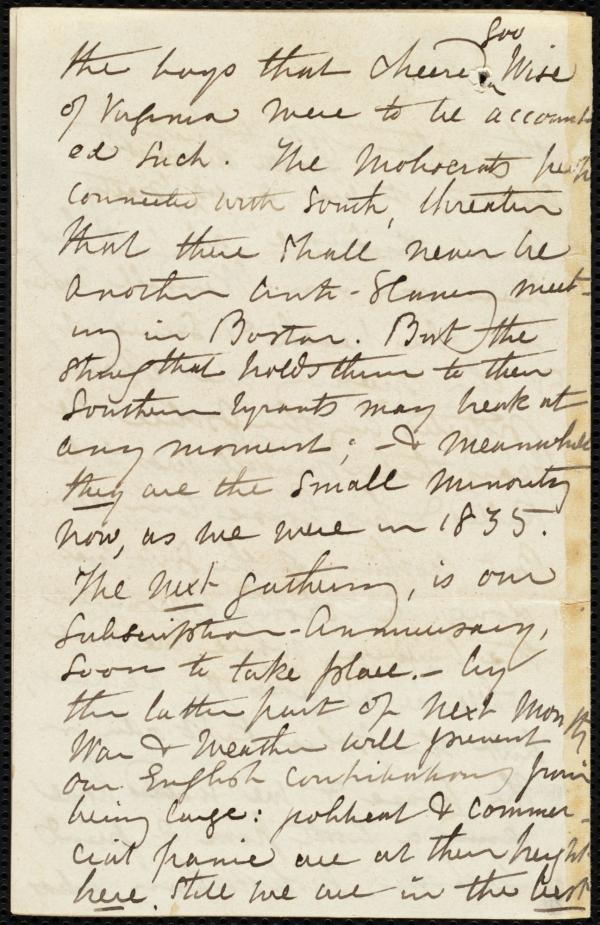 Gov
the boys that cheered Wise
of Virginia were to be account-
ed such. The Mobocrats here
connected with South, threaten
that there shall never be
another Anti-Slavery meet-
ing in Boston. But the
string that holds them to their
Southern tyrants may break at
any moment; - & meanwhile
they are the small minority
now, as we were in 1835.
The next gathering, is our
Subscription-Anniversary,
soon to take place. - by
the latter part of next month
War & Weather will prevent
our English contributions from
being large: political & commer-
cial panic are at their height
here. Still we are in the best